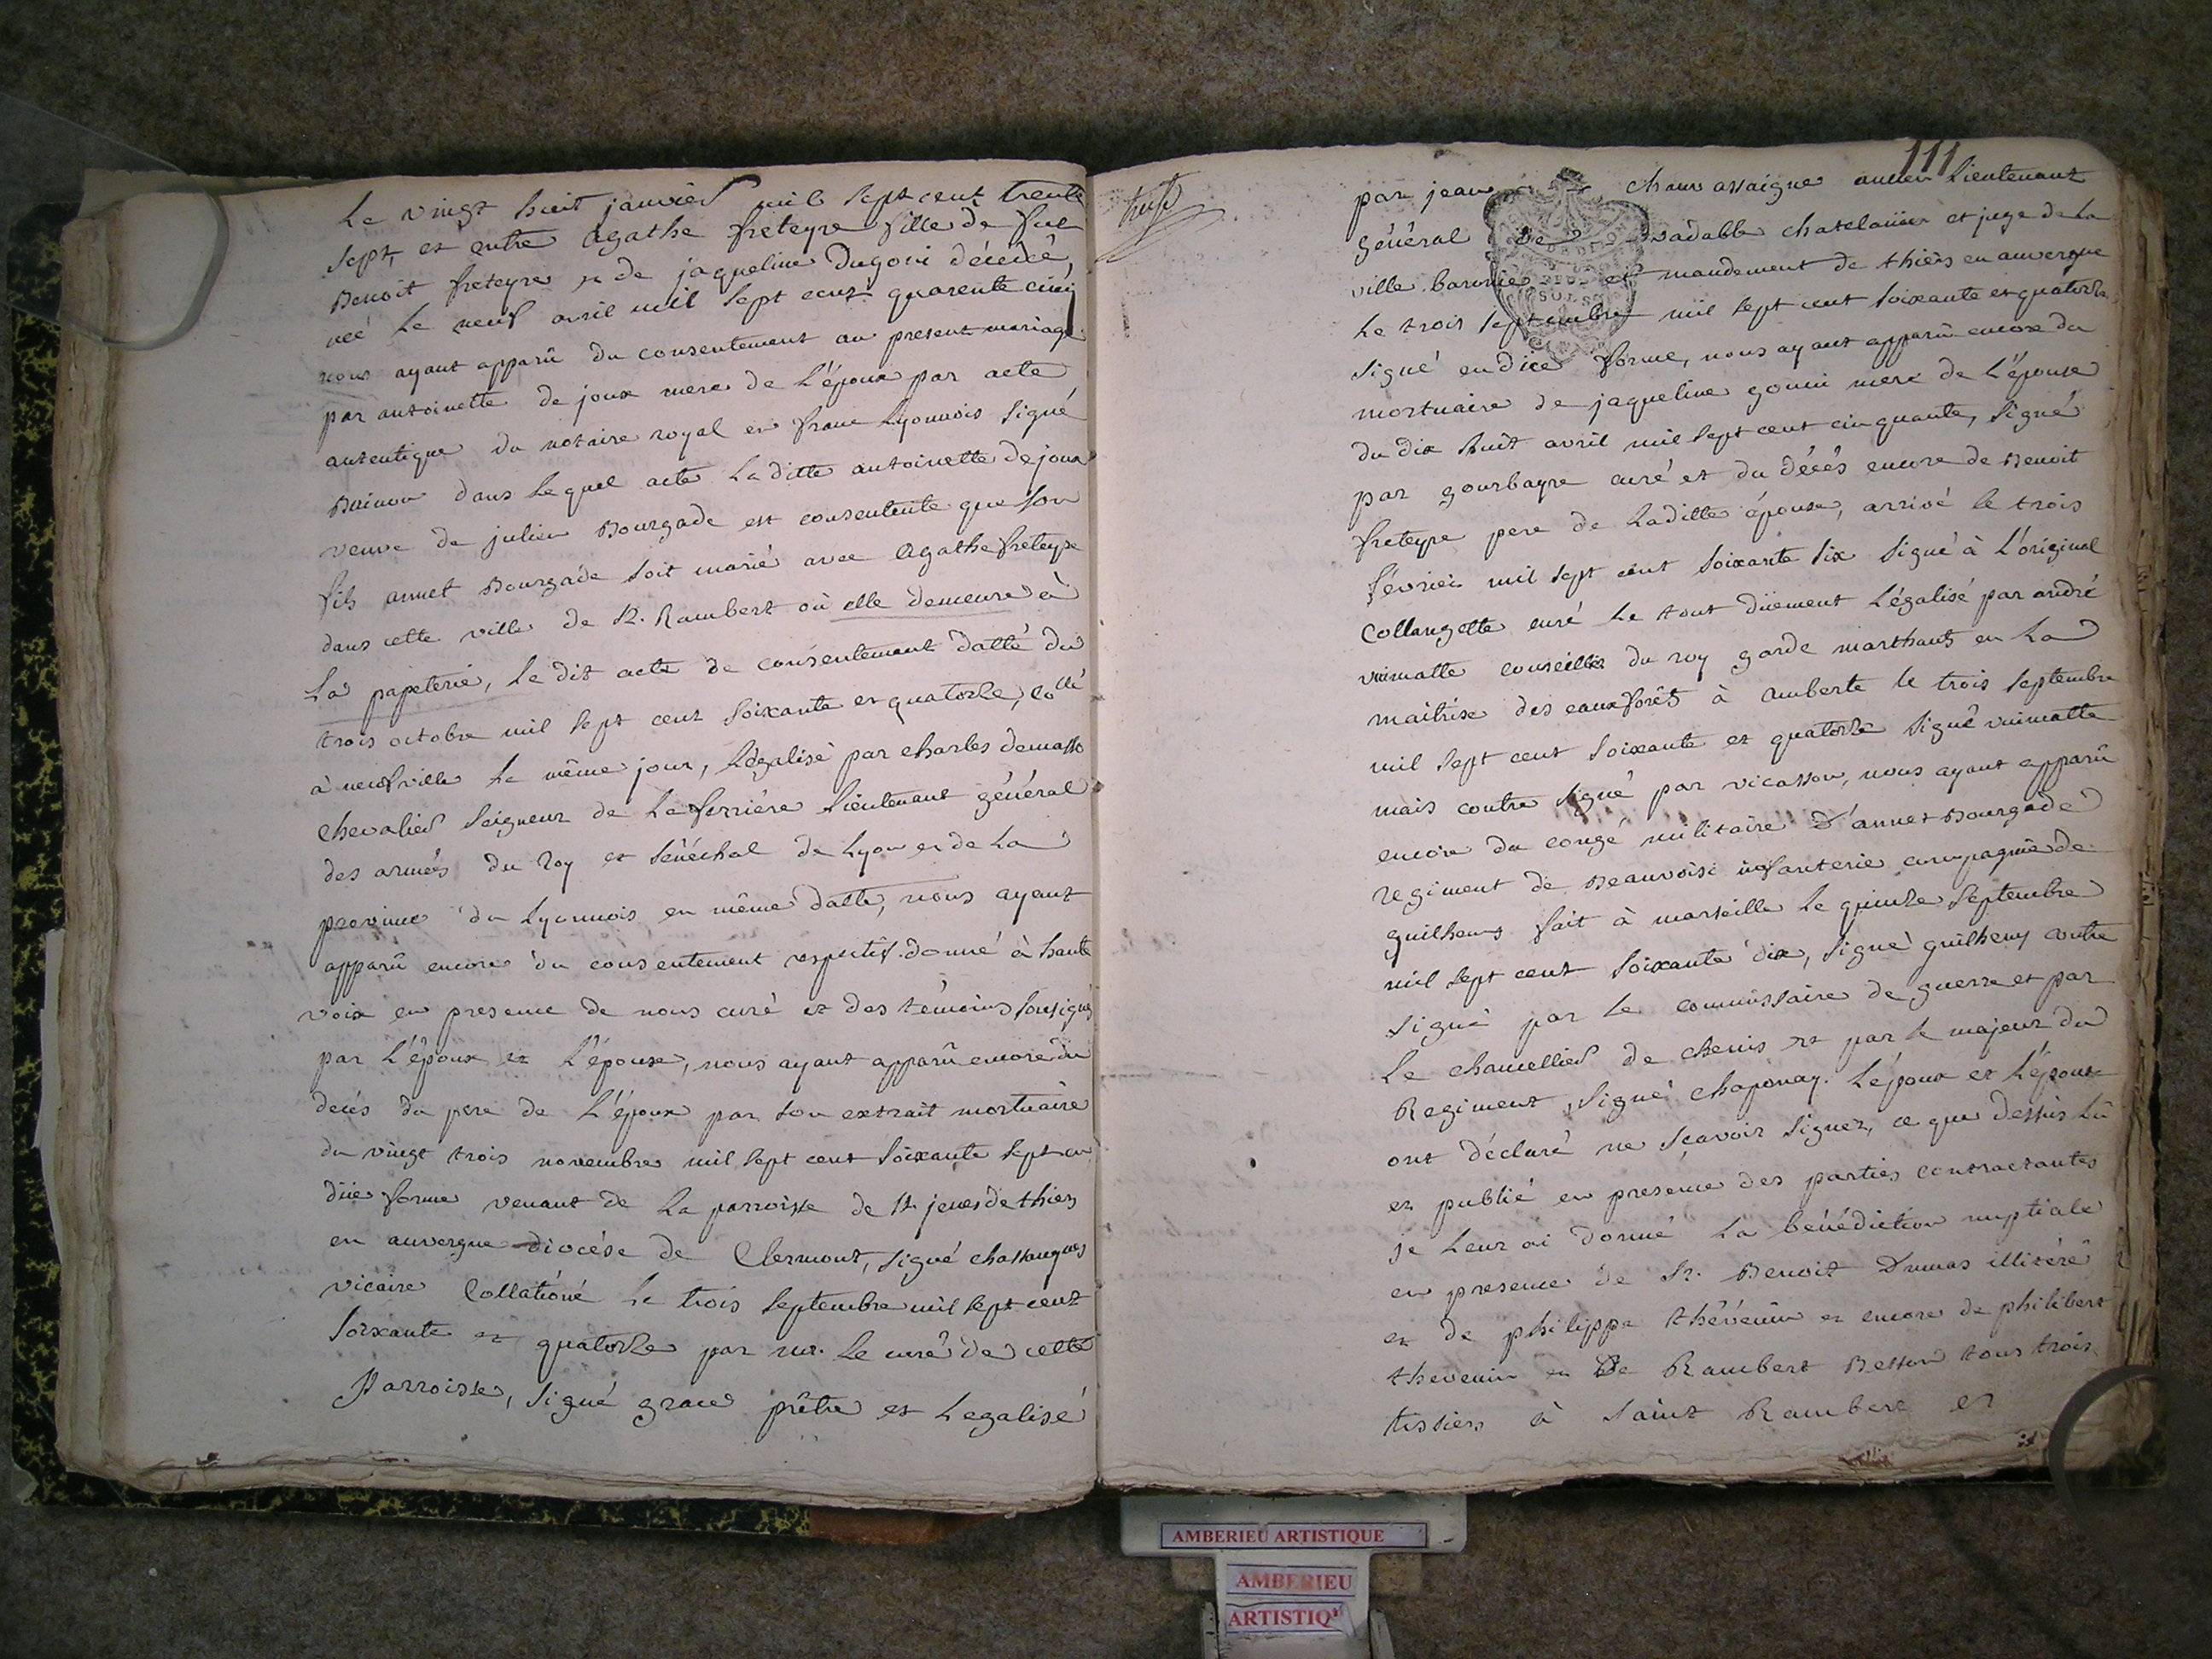 Le vingt huit janvier mil sept cent trente
sept, et entre agathe freteyre fille de feu
Benoit freteyre et de jaqueline dugoui décédé,
neé le neuf avril mil sept cent quarente cinq
nous ayant apparû du consentement au present mariage
par antoinette de joux mere de L'époux par acte
autentique du notaire royal en franc Lyonnois signé
dans lequel acte La ditte antoinette dejoux
veuve de julien Bourgade est consentente que son
fils annet Bourgade soit marié avec agathe freteyre
dans cette ville de St. Rambert où elle demeure à
La papeterie, Le dit acte de consentement datté du
trois octobre mil sept cent soixante et quatorze, collé
à neufville le même jour, Légalisé par charles demasso
chevalier seigneur de La ferriére Lieutenant général
des armées du Roy et sénéchal de Lyon et de La
province du Lyonnois en même datte, nous ayant
apparû encore du consentement respectif donné à haute
voix en presence de nous curé et des témoins sousignés
par L'époux et L'épouse, nous ayant apparû encore du
decés du pere de L'époux par son extrait mortuaire
du vingt trois novembre mil sept cent soixante sept en
düe forme venant de La parroisse de St. jenes de thiers
en auvergne diocése de Clermont, signé chassaignes
vicaire Collationé Le trois septembre mil sept cent
soixante et quatorze par mr. Le curé de cette
Parroisse, signé grace prêtre et Legalisé
111
par jean chaussaigne ancien Lieutenant
général de vadable chatelain et juge de La
ville baronie et mandement de thiers en auvergne
Le trois septembre mil sept cent soixante et quatorze
signé en düe forme, nous ayant apparû encore du
mortuaire de jaqueline gouni mere de L'épouse
du dix huit avril mil sept cent cinquante, signé
par gourbayre curé et du décés encore de Benoit
freteyre pere de Laditte épouse, arrivé le trois
février mil sept cent soixante six signé à L'original
Collangette curé Le tout düement Légalisé par andré
vimatte conseiller du roy garde marthaut en La
maitrise des eaux forêts à amberte le trois septembre
mil sept cent soixante et quatorze signé vimatte
mais contre signé par vicasson, nous ayant apparû
encore du congé militaire d'annet Bourgade
regiment de Beauvoisi infanterie compagnie de
guilhens fait à marseille Le quinze septembre
mil sept cent soixante dix, signé guilheng contre
signé par Le commissaire de guerre et par
Le chancellier de chenis et par le majeur du
Regiment, signé chaponay. L'époux et L'épouse
ont déclaré ne sçavoir signer, ce que dessus Lû
et publié en presence des parties contractantes
je Leur ai donné La bénédiction nuptiale
en presence de Sr. Benoit Dumas illitéré
et de philippe thévenin et encore de philibert
thevenin et De Rambert Besson tous trois
tissiers à saint Rambert et
AMBERIEU ARTISTIQUE
AMBERIEU
ARTISTIQ